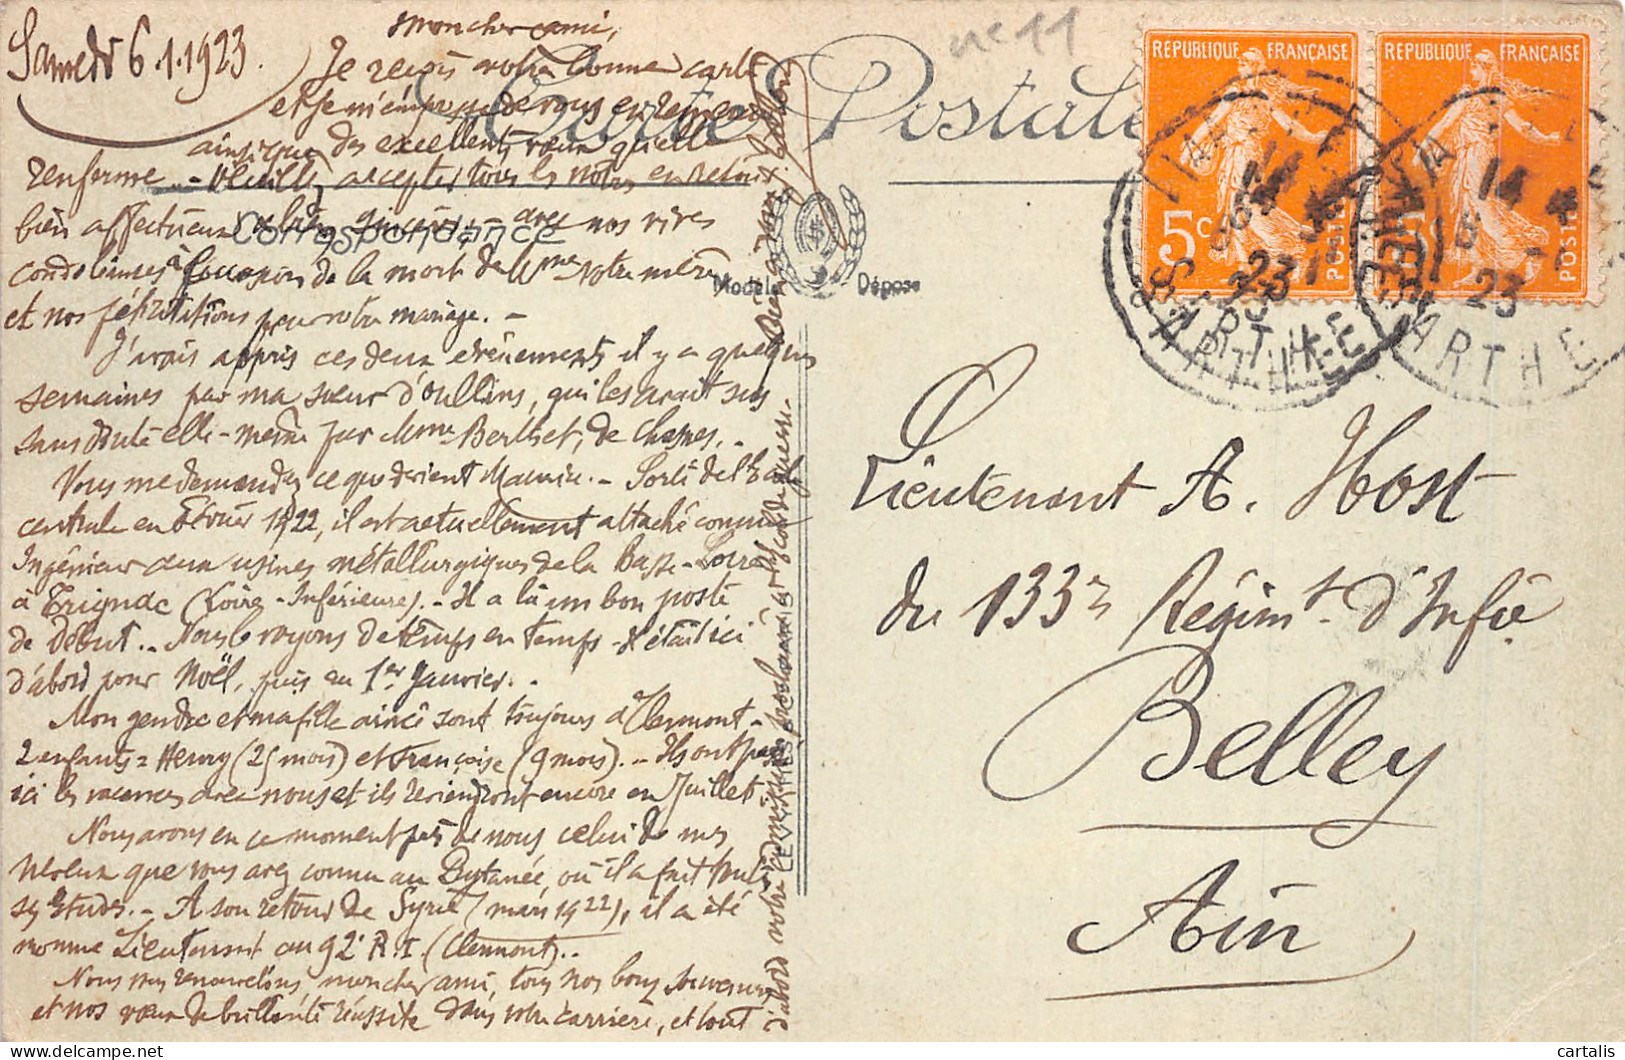 Samedi 6.1.1923.
n° 11
Carte Postale
Correspondance
Modèle Déposé
RÉPUBLIQUE FRANÇAISE
5c
POSTES
RÉPUBLIQUE FRANÇAISE
POSTES
14
23
SARTHE
14
23
SARTHE
Mon cher ami,
Je reçois votre bonne carte
et je m'empresse de vous en remercier
ainsi que des excellents vœux qu'elle
renferme. - Veuillez accepter tous les nôtres en retour
bien affectueux et bien sincères, avec nos vives
condoléances à l'occasion de la mort de Mme votre mère
et nos félicitations pour votre mariage. -
J'avais appris ces deux événements il y a quelques
semaines par ma sœur d'Oullins, qui les avait sus
sans doute elle-même par Mme Berthet, de
Vous me demandez ce que devient Maurice. - Sorti de l'Ecole
centrale en Février 1922, il est actuellement attaché comme
Ingénieur aux usines métallurgiques de la Basse-Loire
à Trignac (Loire-Inférieure). - Il a là un bon poste
de début. - Nous le voyons de temps en temps - Il était ici
d'abord pour Noël, puis au 1er Janvier. -
Mon gendre et ma fille aînée sont toujours à Clermont -
2 enfants = Henry (25 mois) et Françoise (9 mois). - Ils ont passé
ici les vacances avec nous et ils reviendront encore en Juillet.
Nous avons en ce moment près de nous celui de mes
neveux que vous avez connu au Prytanée, où il a fait toutes
ses Etudes. - A son retour de Syrie (mars 1922), il a été
nommé Lieutenant au 92e R.I. (Clermont). -
Nous vous renouvelons, mon cher ami, tous nos bons souvenirs
et nos vœux de brillante réussite dans votre carrière, et tout
d'abord votre admission prochaine à l'Ecole de guerre. -
Bien à vous
Lieutenant A. Host
du 133e Régimt d'Infie
Belley
Ain
cartalis